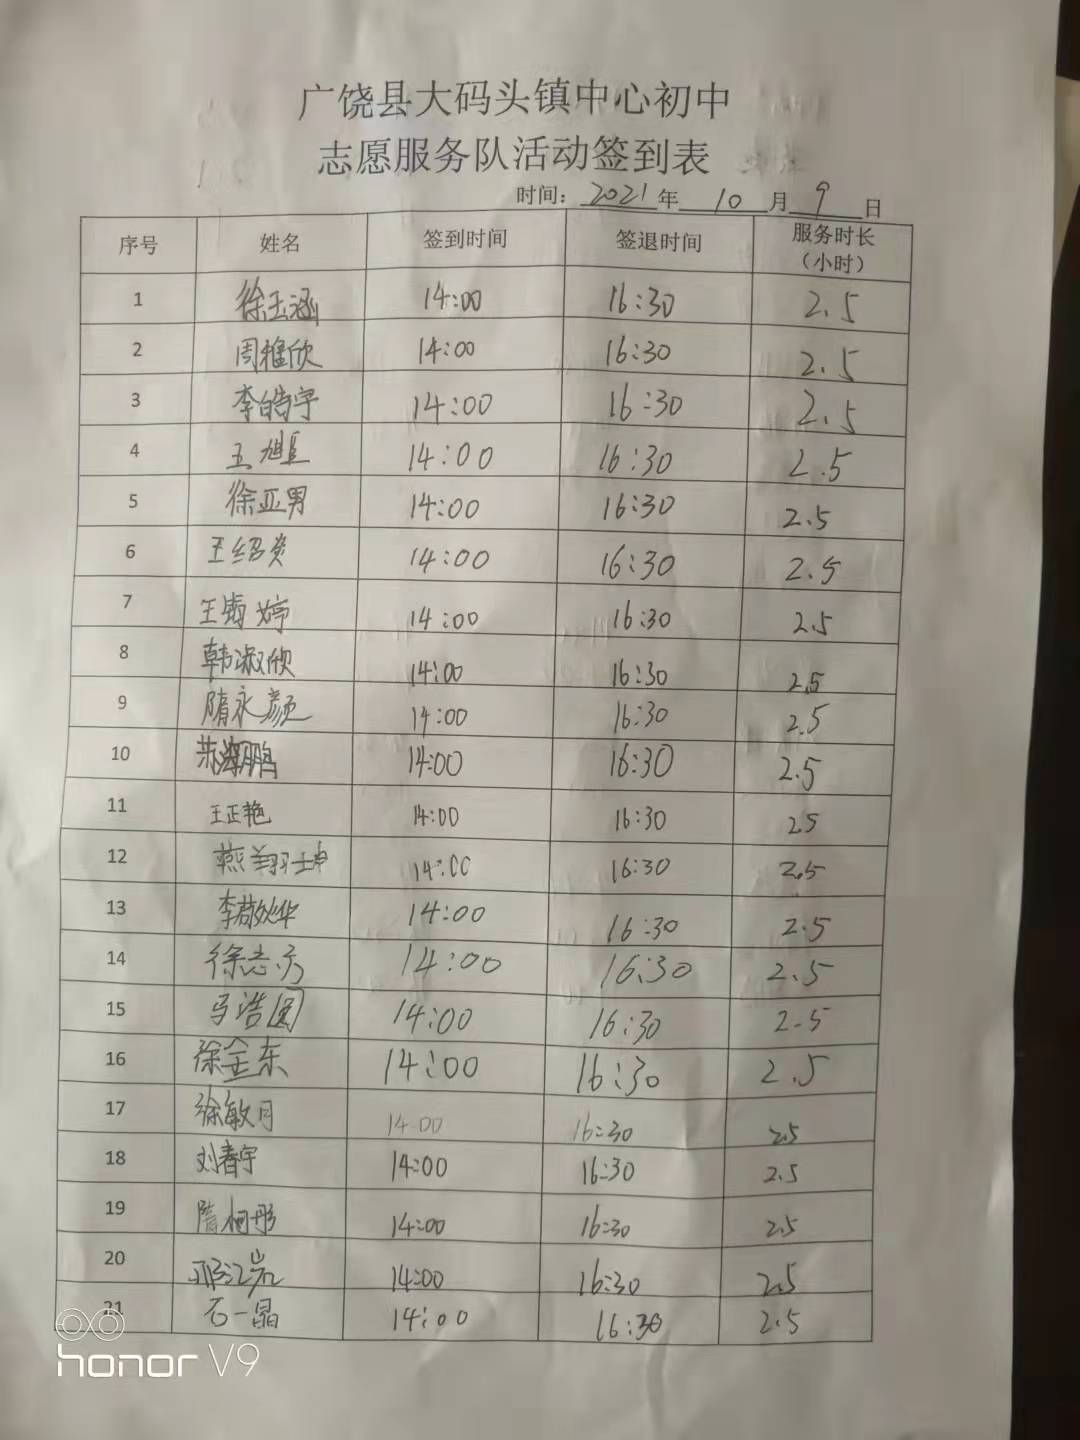 广饶县大码头镇中心初中
志愿服务队活动签到表
时间：2021年10月9日
序号 姓名 签到时间 签退时间 服务时长（小时）
1 徐玉涵 14:00 16:30 2.5
2 周雅欣 14:00 16:30 2.5
3 李皓宇 14:00 16:30 2.5
4 王旭 14:00 16:30 2.5
5 徐亚男 14:00 16:30 2.5
6 王绍资 14:00 16:30 2.5
7 王 婷 14:00 16:30 2.5
8 韩淑欣 14:00 16:30 2.5
9 隋永颜 14:00 16:30 2.5
10 鹏 14:00 16:30 2.5
11 王正艳 14:00 16:30 2.5
12 燕翔坤 14:00 16:30 2.5
13 李 华 14:00 16:30 2.5
14 徐志 14:00 16:30 2.5
15 马浩圆 14:00 16:30 2.5
16 徐金东 14:00 16:30 2.5
17 徐敏月 14:00 16:30 2.5
18 刘春宇 14:00 16:30 2.5
19 隋柯彤 14:00 16:30 2.5
20 岩 14:00 16:30 2.5
21 石一晶 14:00 16:30 2.5
honor V9